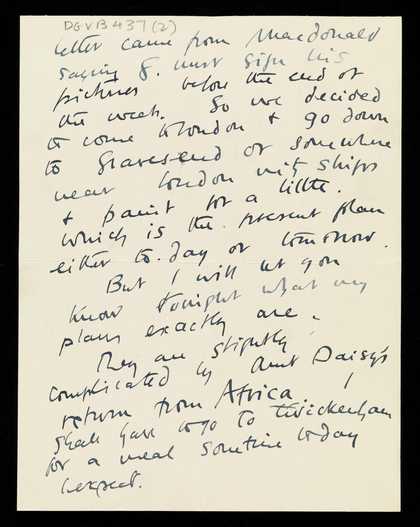 DGVB 437 (2)
letter came from Macdonald
saying G. must sign his
pictures before the end of
the week. So we decided
to come to London & go down
to Gravesend or somewhere
near London with ships
& paint for a little.
which is the present plan
either to-day or tomorrow.
But I will let you
know tonight what my
plans exactly are.
They are slightly
complicated by Aunt Daisy's
return from Africa I
shall have to go to Twickenham
for a meal sometime today
I expect.